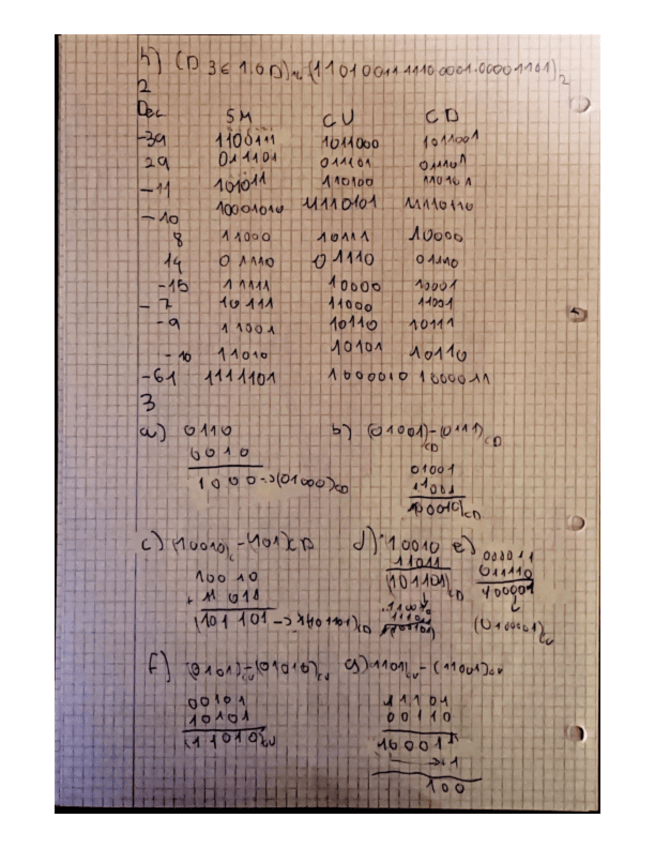 h) (D 3E 1.0D)₁₆ (1101001111100001.00001101)₂
2
Dec SM CU CD
-39 1100111 1011000 1011001
29 011101 011101 011101
-11 101011 110100 110101
-10 10001010 11110101 11110110
8 11000 10111 10000
14 01110 01110 01110
-15 11111 10000 10001
-7 10111 11000 11001
-9 11001 10110 10111
-10 11010 10101 10110
-61 1111101 1000010 1000011
3
a) 0110 b) (01001)CD-(0111)CD
0010
1000->(01000)CD
01001
11001
100010)CD
c) (10010) -(101)CD d) 10010 e) 000011
11011 01110
(101101)CD 100001
10010
+ 11 011
(101 101 ->
(0100001)CU
f) (0101)CU-(01010)CU g) 1101)CU - (11001)CU
00101 11101
10101 00110
(11010)CU 100011
1
100